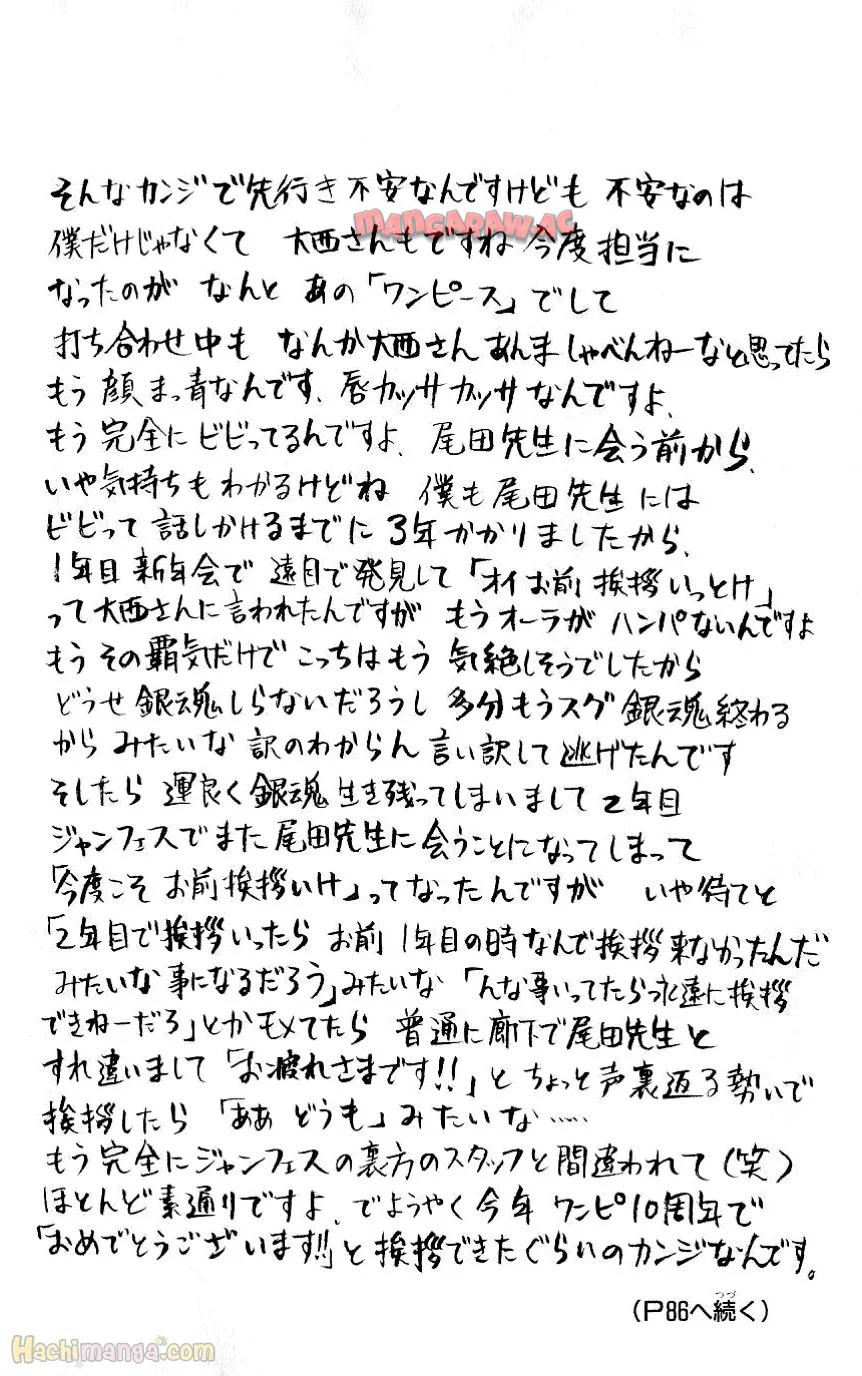 そんなカンジで先行き不安なんですけども 不安なのは
MANGARAW.AC
僕だけじゃなくて 大西さんもですね今度担当に
なったのが なんと あの「ワンピース」でして
打ち合わせ中も なんか大西さんあんましゃべんねーなと思ってたら
もう顔まっ青なんです、唇カッサカッサなんですよ、
もう完全にビビってるんですよ、尾田先生に会う前から、
いや気持ちもわかるけどね 僕も尾田先生には
ビビって話しかけるまでに3年かかりましたから、
1年目新年会で遠目で発見して「オイお前挨拶いっとけ」
って大西さんに言われたんですが もうオーラがハンパないんですよ
もうその覇気だけでこっちはもう気絶しそうでしたから
どうせ銀魂しらないだろうし多分もうスグ銀魂終わる
からみたいな訳のわからん言い訳して逃げたんです
そしたら運良く銀魂生き残ってしまいまして2年目
ジャンフェスでまた尾田先生に会うことになってしまって
「今度こそお前挨拶いけ」ってなったんですが いや待てと
「2年目で挨拶いったらお前1年目の時なんで挨拶来なかったんだ
みたいな事になるだろう」みたいな「んな事いってたら永遠に挨拶
できねーだろ」とかモメてたら 普通に廊下で尾田先生と
すれ違いまして「お疲れさまです!!」とちょっと声裏返る勢いで
挨拶したら「ああ どうも」みたいな……
もう完全にジャンフェスの裏方のスタッフと間違われて(笑)
ほとんど素通りですよ、でようやく今年ワンピ10周年で
「おめでとうございます!!」と挨拶できたぐらいのカンジなんです。
(P86へ続く)
つづ
Hachimanga.com